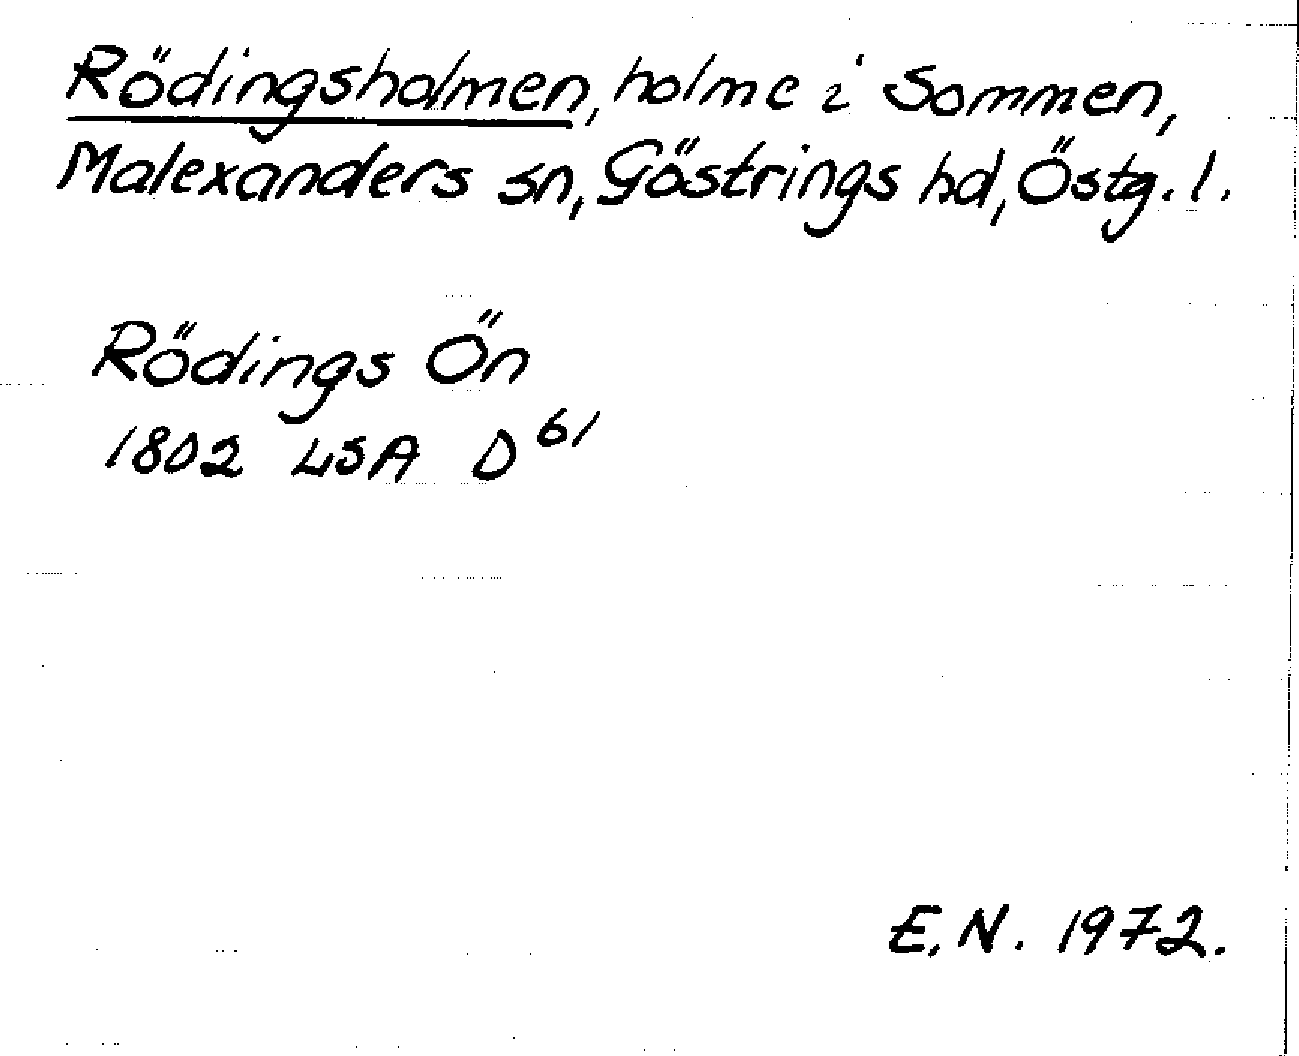 Rödingsholmen, holme i Sommen,
Malexanders sn, Göstrings hd, Östg. l.
Rödings Ön
1802 LSA D 61
E.N. 1972.